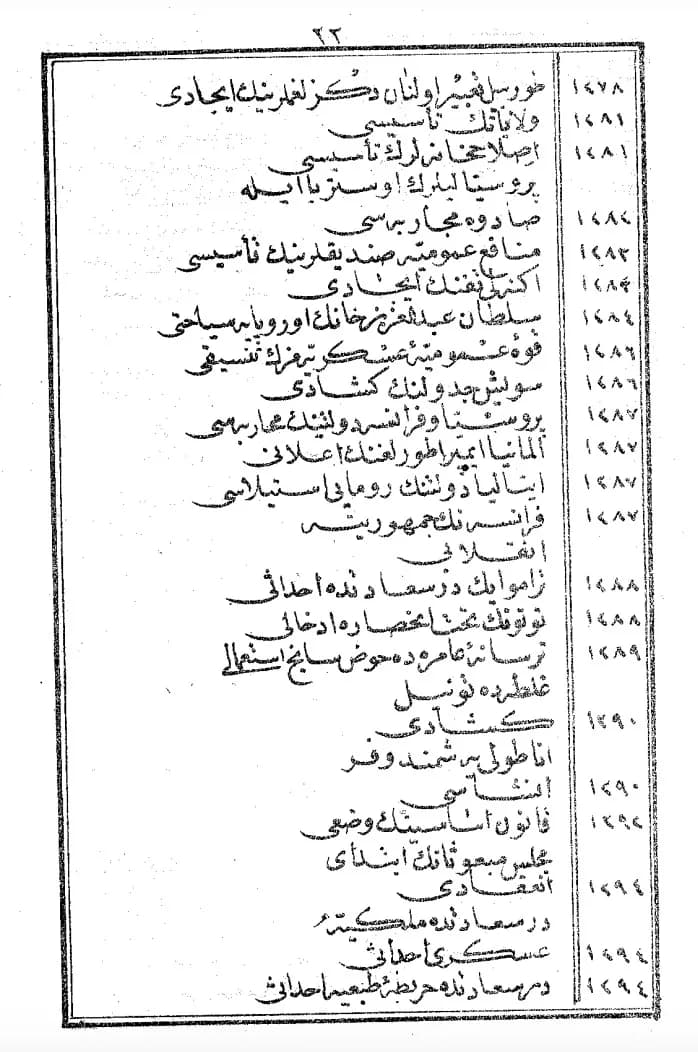 ٢٢
١٢٧٨ طورسل تعبير اولنان دكز لغملرينك ايجادى
١٢٨١ ولاياتك تأسيسى
١٢٨١ اصلاحخانه لرك تأسيسى
پروسيا ليلرك اوستريا ايله
١٢٨٢ صادوه محاربه سى
١٢٨٣ منافع عموميه صنديقلرينك تأسيسى
اكنه لى تفنك ايجادى
١٢٨٤ سلطان عبدالعزيز خانك اوروپايه سياحتى
١٢٨٦ قوۀ عموميۀ عسكريه مزك تنسيقى
١٢٨٦ سويش جدولنك كشادى
١٢٨٧ پروسيا و فرانسه دولتينك محاربه سى
١٢٨٧ المانيا ايمپراطورلغنك اعلانى
١٢٨٧ ايتاليا دولتنك رومايى استيلاسى
١٢٨٧ فرانسه نك جمهوريته
انقلابى
١٢٨٨ تراموايك درسعادتده احداثى
١٢٨٨ توتونك تحت انحصاره ادخالى
١٢٨٩ ترسانۀ عامره ده حوض سابح استعمالى
غلطه ده تونيل
١٢٩٠ كشادى
اناطولى يه شمندوفر
١٢٩٠ انشاسى
١٢٩٢ قانون اساسينك وضعى
مجلس مبعوثانك ابتداى
١٢٩٤ انعقادى
درسعادتده ملكيۀ
١٢٩٤ عسكرى احداثى
١٢٩٤ درسعادتده خريطۀ طبيعيه احداثى